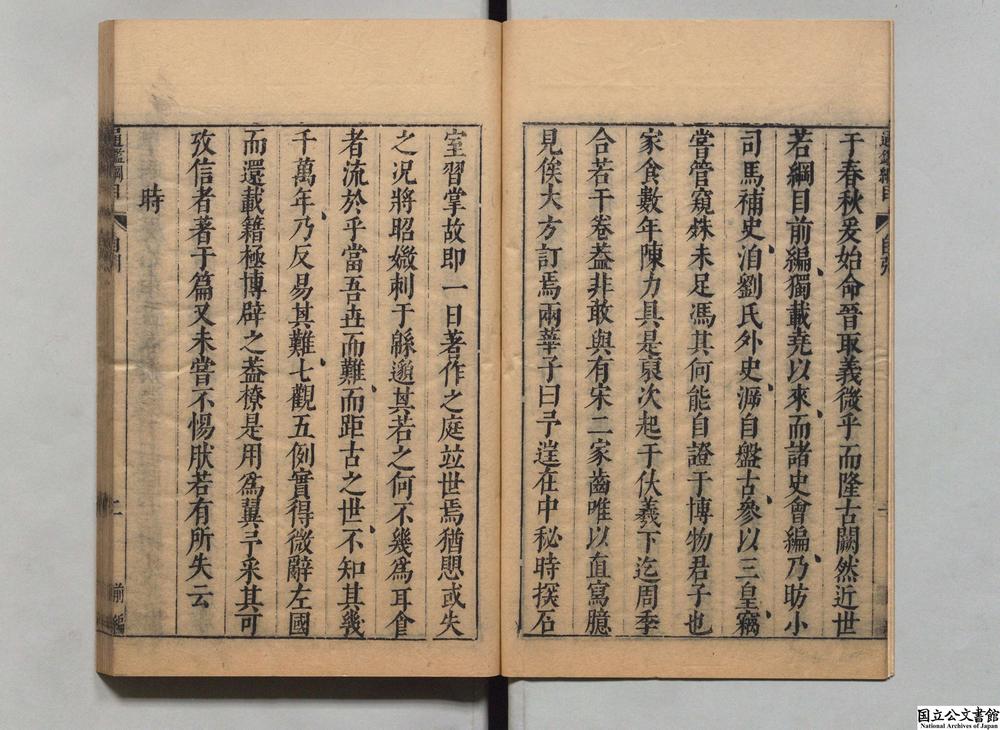 于春秋爰始命晉取義微乎而隆古闕然近世
若綱目前編獨載堯以來而諸史會編乃昉小
司馬補史洎劉氏外史溯自盤古參以三皇竊
嘗管窺姝未足馮其何能自證于博物君子也
家食數年陳力具是裒次起于伏羲下迄周季
合若干卷葢非敢與有宋二家齒唯以直寫臆
見俟大方訂焉兩華子曰予𨓏在中秘時探石
室習掌故即一日著作之庭竝世焉猶愳或失
之况將昭媺刺于緜邈其若之何不幾爲耳食
者流於乎當吾丗而難而距古之世不知其幾
千萬年乃反易其難七觀五例實得微辭左國
而還載籍極博辟之葢橑是用爲翼予采其可
攷信者著于篇又未嘗不愓肰若有所失云
時
通鑑綱目
二
前編
国立公文書館
National Archives of Japan